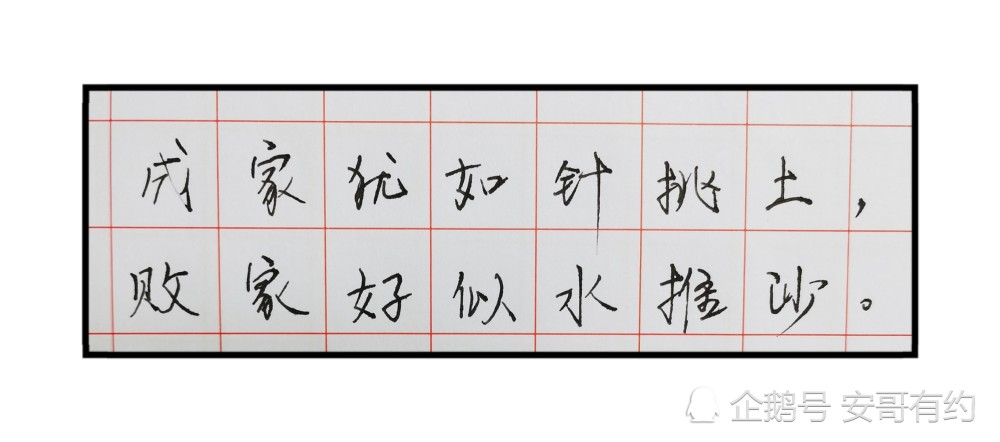 成家犹如针挑土，
败家好似水推沙。
企鹅号 安哥有约